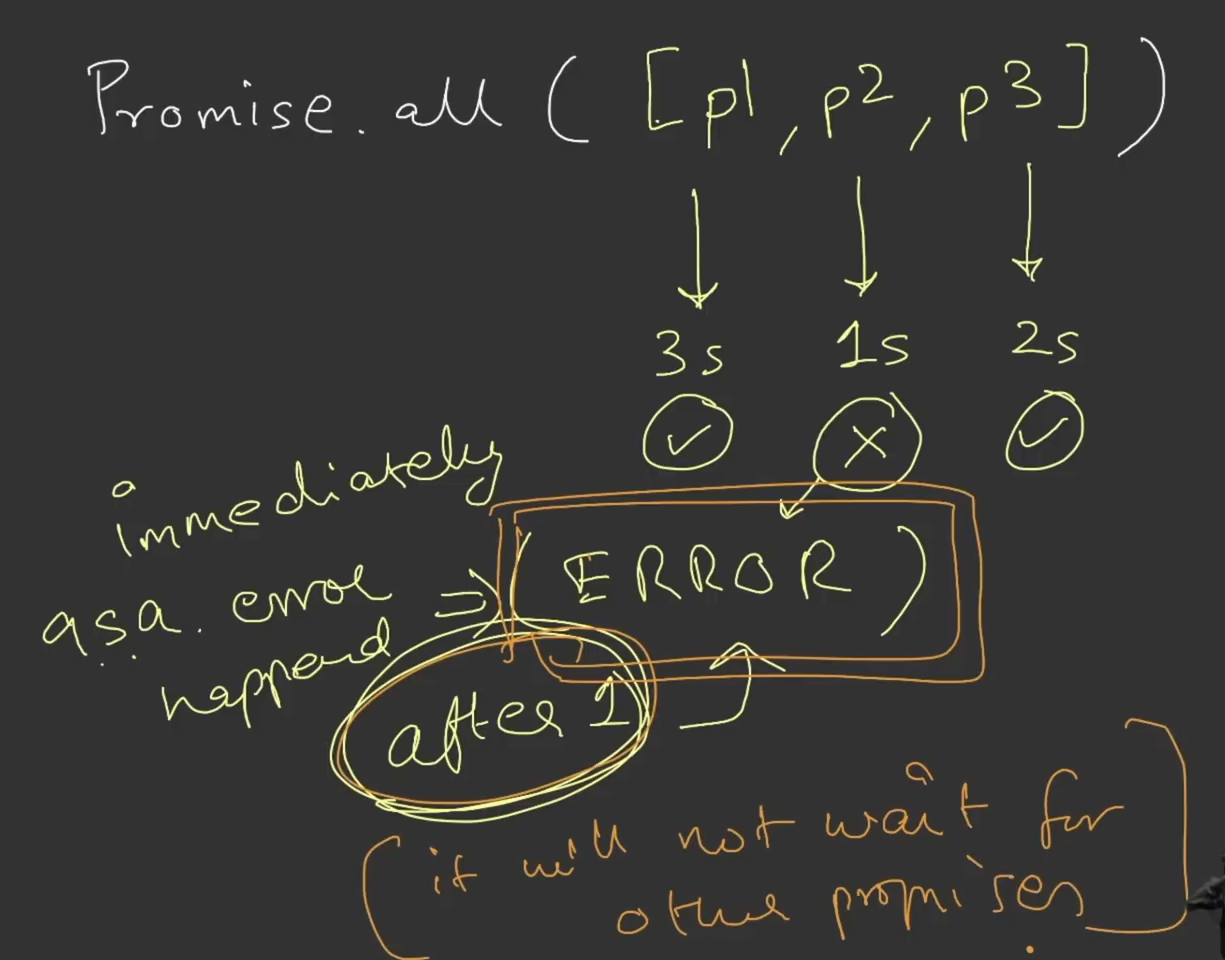 Promise.all ( [p1, p2, p3] )
3s 1s 2s
immediately
asa. error
happend
(ERROR)
after 1
(it will not wait for
other promises